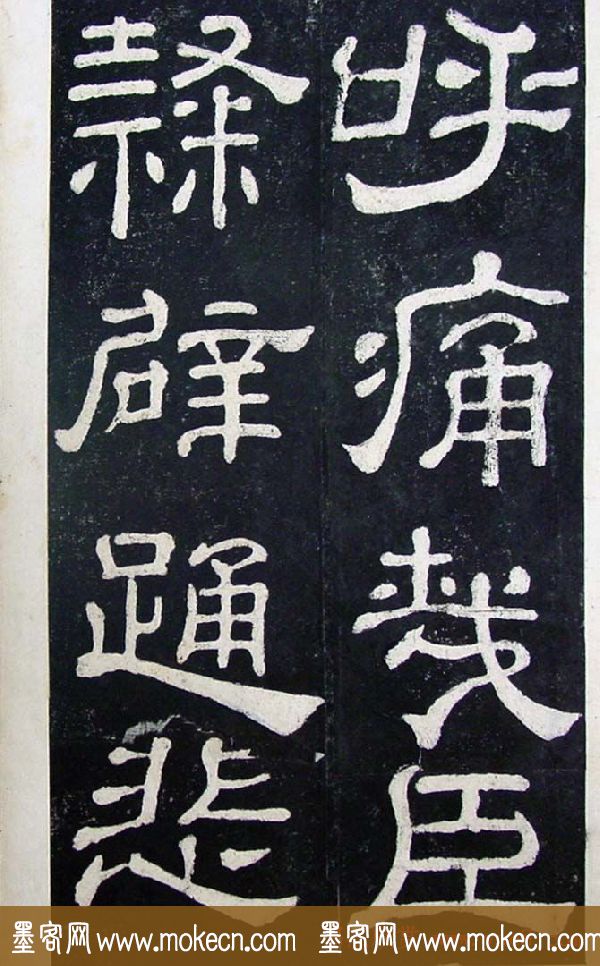 呼痛哉臣
隸擗踊悲
墨客网 www.mokecn.com 墨客网 www.mokecn.com